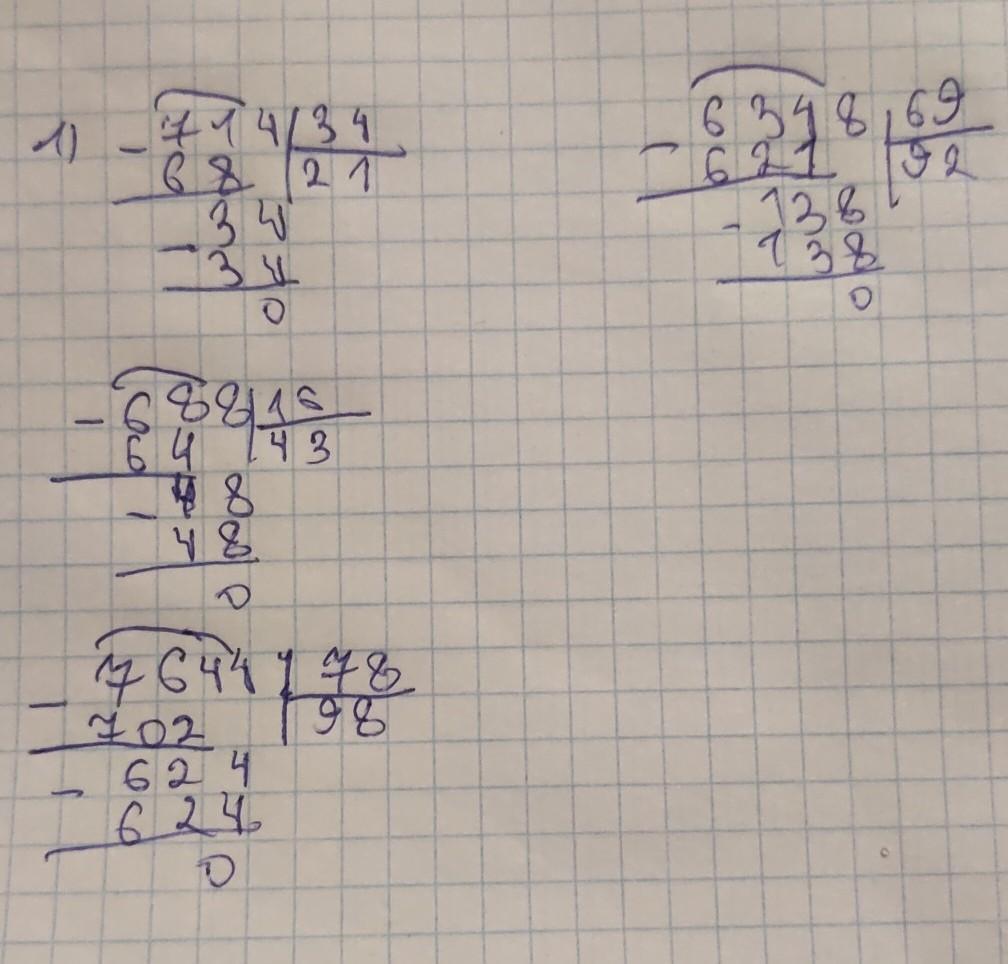 1) - 714 | 34
68 | 21
- 34
34
0
- 6348 | 69
621 | 92
- 138
138
0
- 688 | 16
64 | 43
- 48
48
0
- 7644 | 78
702 | 98
- 624
624
0